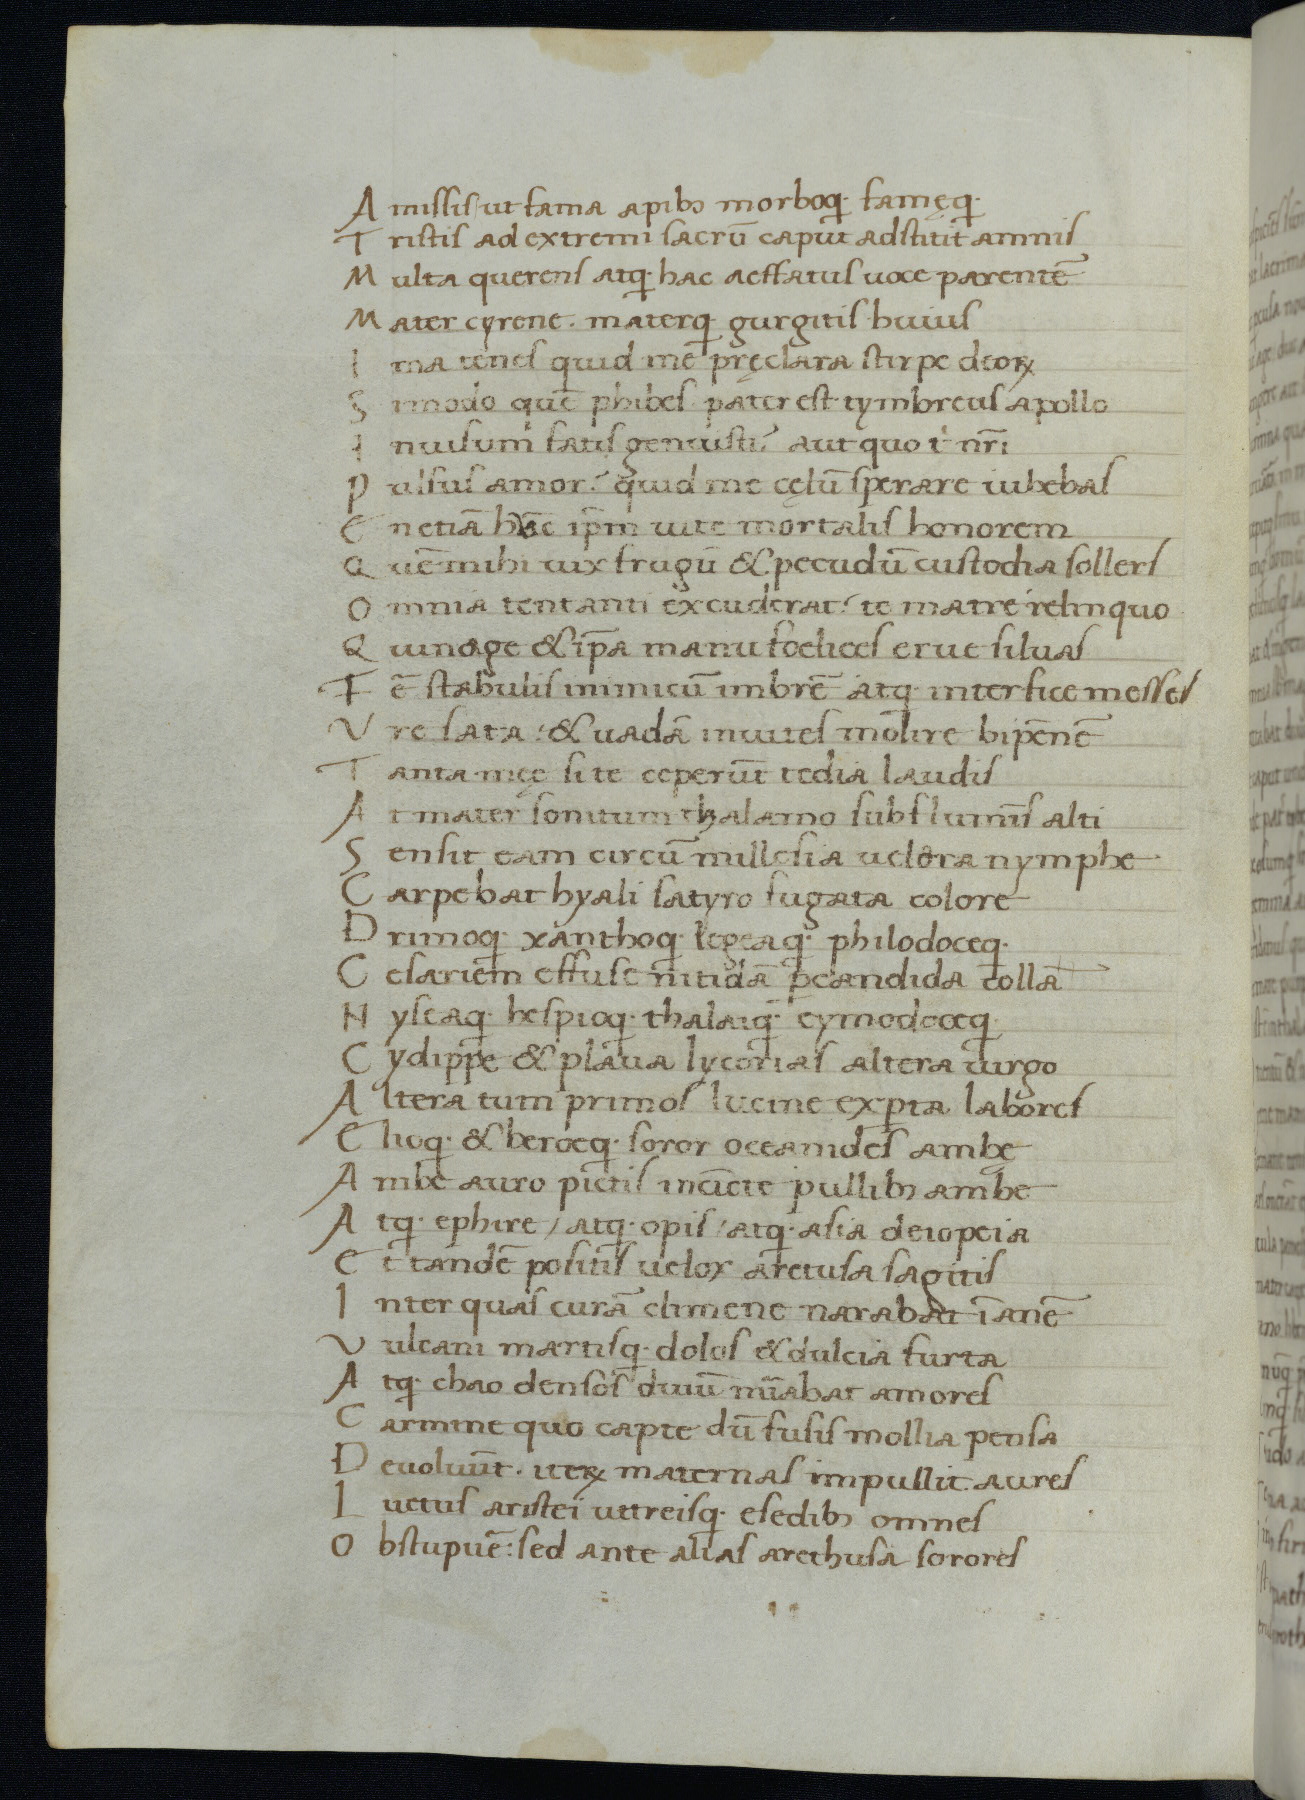 A missis / ut fama apibꝫ morboq᷒ famęq᷒
T ristis ad extremi sacrū caput adstitit amnis
M ulta querens atq᷒ hac aeffatus uoce parentē
M ater cyrene. materq᷒ gurgitis huius
I ma tenes quid mē pręclara stirpe deoꝝ
S i modo quē phibes pater est tymbreus apollo
I nuisum fatis genuisti? aut quo t̄ nr̄i
P ulsus amor? quid me cęlū sperare iubebas
E n etiā hoc ip̄m uite mortalis honorem
Q uē mihi uix frugū & pecudū custodia sollers
O mnia tentanti excuderat? te matre relinquo
Q uin age & ip̄a manu foelices erue siluas
F ē stabulis inimicū imbrē atq᷒ interfice messes
V re sata / & uadā inuites molire bipēnē
T anta męę si te ceperūt tedia laudis
A t mater sonitum thalamo sub fluminis alti
S ensit eam circū millesia uelera nymphe
C arpebat hyali satyro fugata colore
D rimoq᷒ xanthoq᷒ legeaq᷒ philodoceq᷒
C esariem effuse nitidā ꝑ candida collā
N yseaq᷒ hespioq᷒ thalaiq᷒ cymodoceq᷒
C ydippe & plaua lycorias altera uirgo
A ltera tum primos lucine exp̱ta labores
E lioq᷒ & beroeq᷒ soror oceanides ambę
A mbe auro pictis incīcte pullibꝫ ambe
A tq᷒ ephire / atq᷒ opis / atq᷒ asia deiopeia
E t tandē positis uelox aretusa sagitis
I nter quas curā climene narabat īanē
V ulcani martisq᷒ dolos & dulcia furta
A tq᷒ chao densos diuū nūabat amores
C armine quo capte dū fusis mollia pensa
D euoluūt. iteꝝ maternas impullit aures
L uctus aristei uitreisq᷒ esedibꝫ omnes
O bstupuē: sed ante alias arethusa sorores